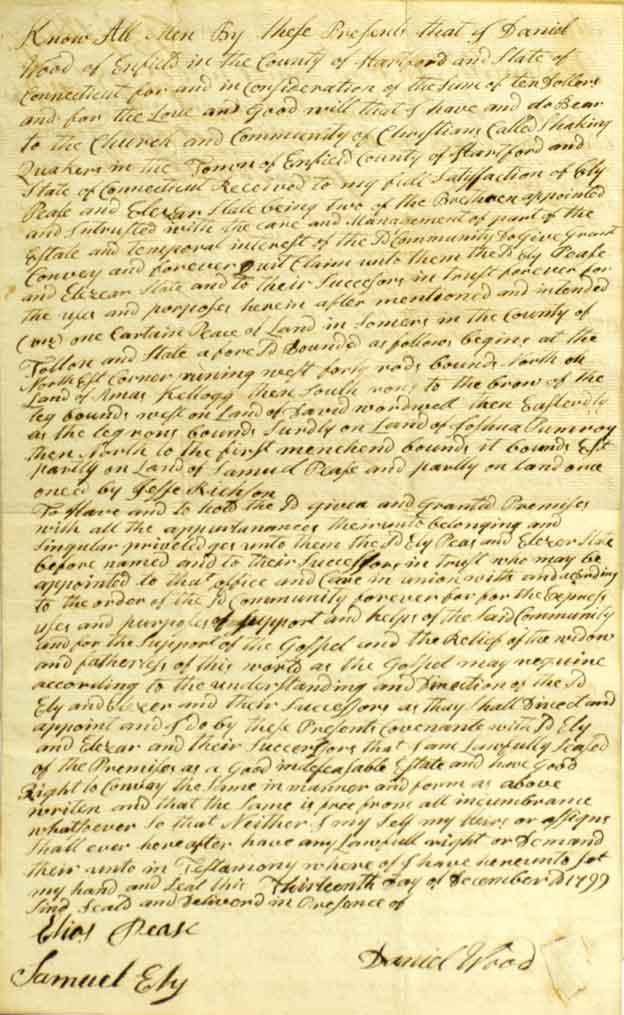 Know All Men By these Presents that I Daniel
Wood of Enfield in the County of Hartford and State of
Connecticut for and in Consideration of the Sum of ten Dollars
and for the Love and Good will that I have and do Bear
to the Church and Community of Christians Called Shaking
Quakers in the Town of Enfield County of Hartford and
State of Connecticut Received to my full Satisfaction of Ely
Pease and Elezar Slate being two of the Bretheren appointed
and Intrusted with the care and Management of part of the
Estate and temporal interest of the sd Community Do Give Grant
Convey and forever Quit Claim unto them the sd Ely Pease
and Elezear Slate and to their Successors in trust forever for
the uses and porposes herein after mentioned and intended
(viz) one Certain Peace of Land in Somers in the County of
Tollon and State afore sd Bounded as follows begins at the
North Est Corner runing west forty rods bounds North on
Land of Amas Kellogg then South rons to the brow of the
leg bounds west on Land of David wardwell then Easterdly
as the leg rons bounds Surdly on Land of Joshua Pumroy
then North to the first menchend bounds it bounds Est
partly on Land of Samuel Pease and partly on land one
oned by Jesse Kichson
To Have and to hold the sd given and Granted Premises
with all the appurtanances thereunto belonging and
Singular priveledges unto them the sd Ely Peas and Elezer Slate
before named and to their Successors in trust who may be
appointed to that office and Care in union with and according
to the order of the sd Community forever for for the Express
uses and purposes of support and helps of the Said Community
and for the Support of the Gospel and the Relief of the widow
and fatherless of this world as the Gospel may require
according to the understanding and Direction of the sd
Ely and Elezer and their Successors as they Shall Direct and
appoint and I do by these Presents Covenante with sd Ely
and Elezar and their Successors that I am Lawfully Seased
of the Premises as a Good indefeasable Estate and have Good
Right to Convay the Same in manner and form as above
writen and that the Same is free from all incumbrance
whatsoever So that Neither I my Self my Heirs or assigns
Shall ever hereafter have any Lawfull right or Demand
their unto in Testamony where of I have hereunto Set
my hand and Seal this Thirteenth day of December AD 1799
Sind Seald and Deliverd in Presence of
Elias Pease
Daniel Wood
Samuel Ely